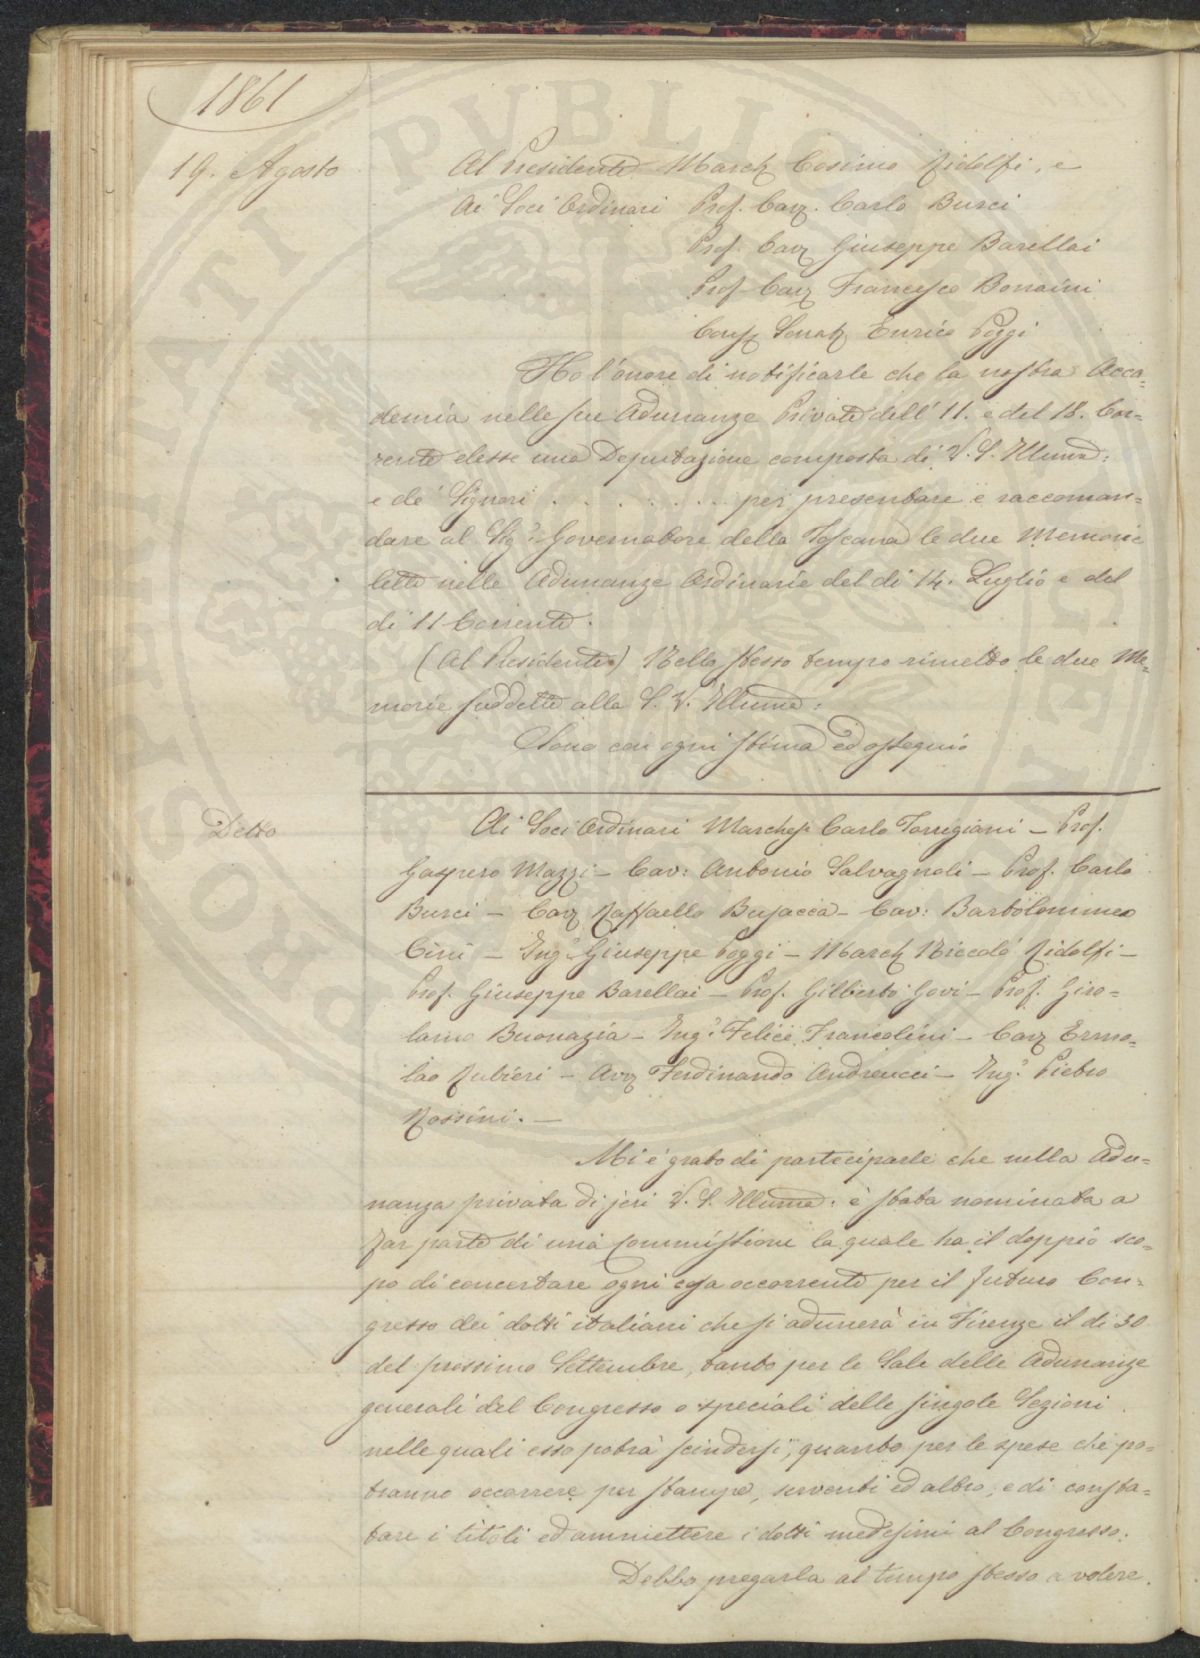 1861
19. Agosto
Al Presidente March Cosimo Ridolfi, e
Ai Soci Ordinari Prof. Cav. Carlo Burci
Prof. Cav Giuseppe Barellai
Prof Cav Francesco Bonaini
Consr Senatr Enrico Poggi
Ho l'onore di notificarle che la nostra Acca=
demia nelle sue Adunanze Private dell' 11. e del 18. Cor=
rente elesse una Deputazione composta di V. S. Illuma:
e de' Signori . . . . . . . per presentare e raccoman=
dare al Sigr Governatore della Toscana le due Memorie
lette nelle Adunanze Ordinarie del dì 14. Luglio e del
dì 11 Corrente.
(Al Presidente) Nello stesso tempo rimetto le due Me=
morie suddette alla S. V. Illuma:
Sono con ogni stima ed ossequio
Detto
Ai Soci Ordinari Marchese Carlo Torrigiani - Prof.
Gaspero Mazzi - Cav: Antonio Salvagnoli - Prof. Carlo
Burci - Cav Raffaello Busacca - Cav: Bartolommeo
Cini - Ingr Giuseppe Poggi - March Niccolò Ridolfi -
Prof. Giuseppe Barellai - Prof. Gilberto Govi - Prof. Giro=
lamo Buonazia - Ingr Felice Francolini - Cav Ermo=
lao Rubieri - Avv Ferdinando Andreucci - Ingr Pietro
Rossini. -
Mi è grato di parteciparle che nella Adu=
nanza privata di jeri V. S. Illuma: è stata nominata a
far parte di una Commissione la quale ha il doppio sco=
po di concertare ogni cosa occorrente per il futuro Con=
gresso dei dotti italiani che si adunerà in Firenze il dì 30
del prossimo Settembre, tanto per le Sale delle Adunanze
generali del Congresso o speciali delle singole Sezioni
nelle quali esso potrà scindersi, quanto per le spese che po=
tranno occorrere per stampe, serventi ed altro, e di consta=
tare i titoli ed ammettere i dotti medesimi al Congresso.
Debbo pregarla al tempo stesso a volere